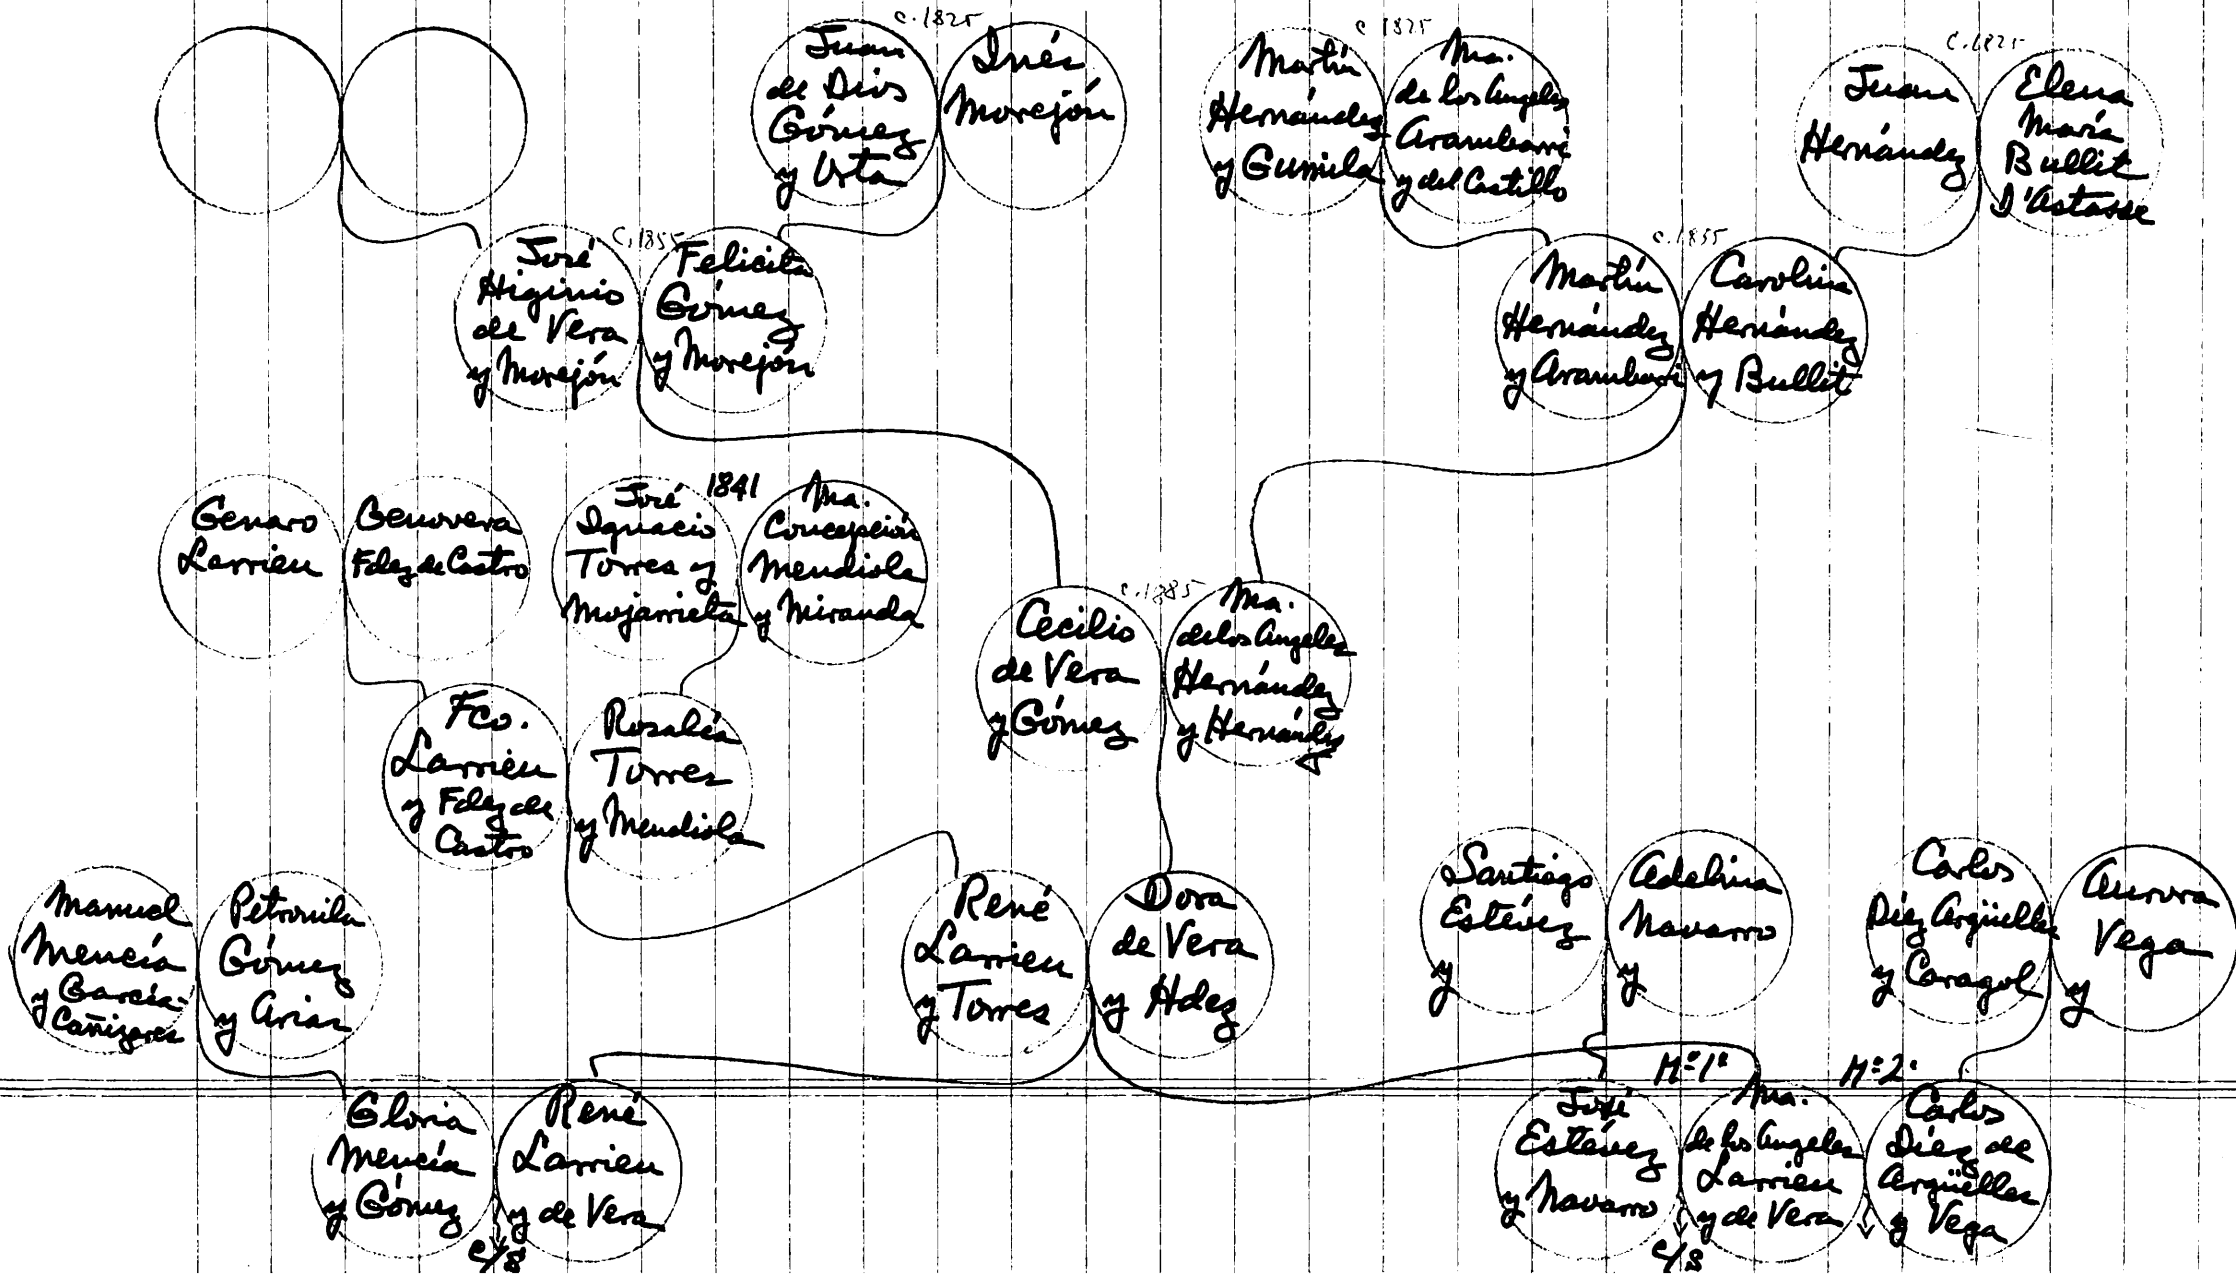 c. 1825
Juan
de Dios
Gómez
y Urta
Inés
Morejón
c 1825
Martín
Hernández
y Gumila
Ma.
de los Angeles
Arambarri
y del Castillo
c. 1825
Juan
Hernández
Elena
María
Bullit
D'Astasse
C. 1855
José
Higinio
de Vera
y Morejón
Felicita
Gómez
y Morejón
c. 1855
Martín
Hernández
y Arambarri
Carolina
Hernández
y Bullit
Genaro
Larrieu
Genoveva
Fdez de Castro
1841
José
Ignacio
Torres y
Mojarrieta
Ma.
Concepción
Mendiola
y Miranda
c. 1885
Cecilio
de Vera
y Gómez
Ma.
de los Angeles
Hernández
y Hernández
Fco.
Larrieu
y Fdez de
Castro
Rosalía
Torres
y Mendiola
Manuel
Mencía
y García-
Cañizares
Petronila
Gómez
y Arias
René
Larrieu
y Torres
Dora
de Vera
y Hdez
Santiago
Estévez
y
Adelina
Navarro
y
Carlos
Díez Argüelles
y Caragol
Aurora
Vega
y
Gloria
Mencía
y Gómez
René
Larrieu
y de Vera
c/s
Mº1º
Mº2º
José
Estévez
y Navarro
Ma.
de los Angeles
Larrieu
y de Vera
Carlos
Díez de
Argüelles
y Vega
c/s